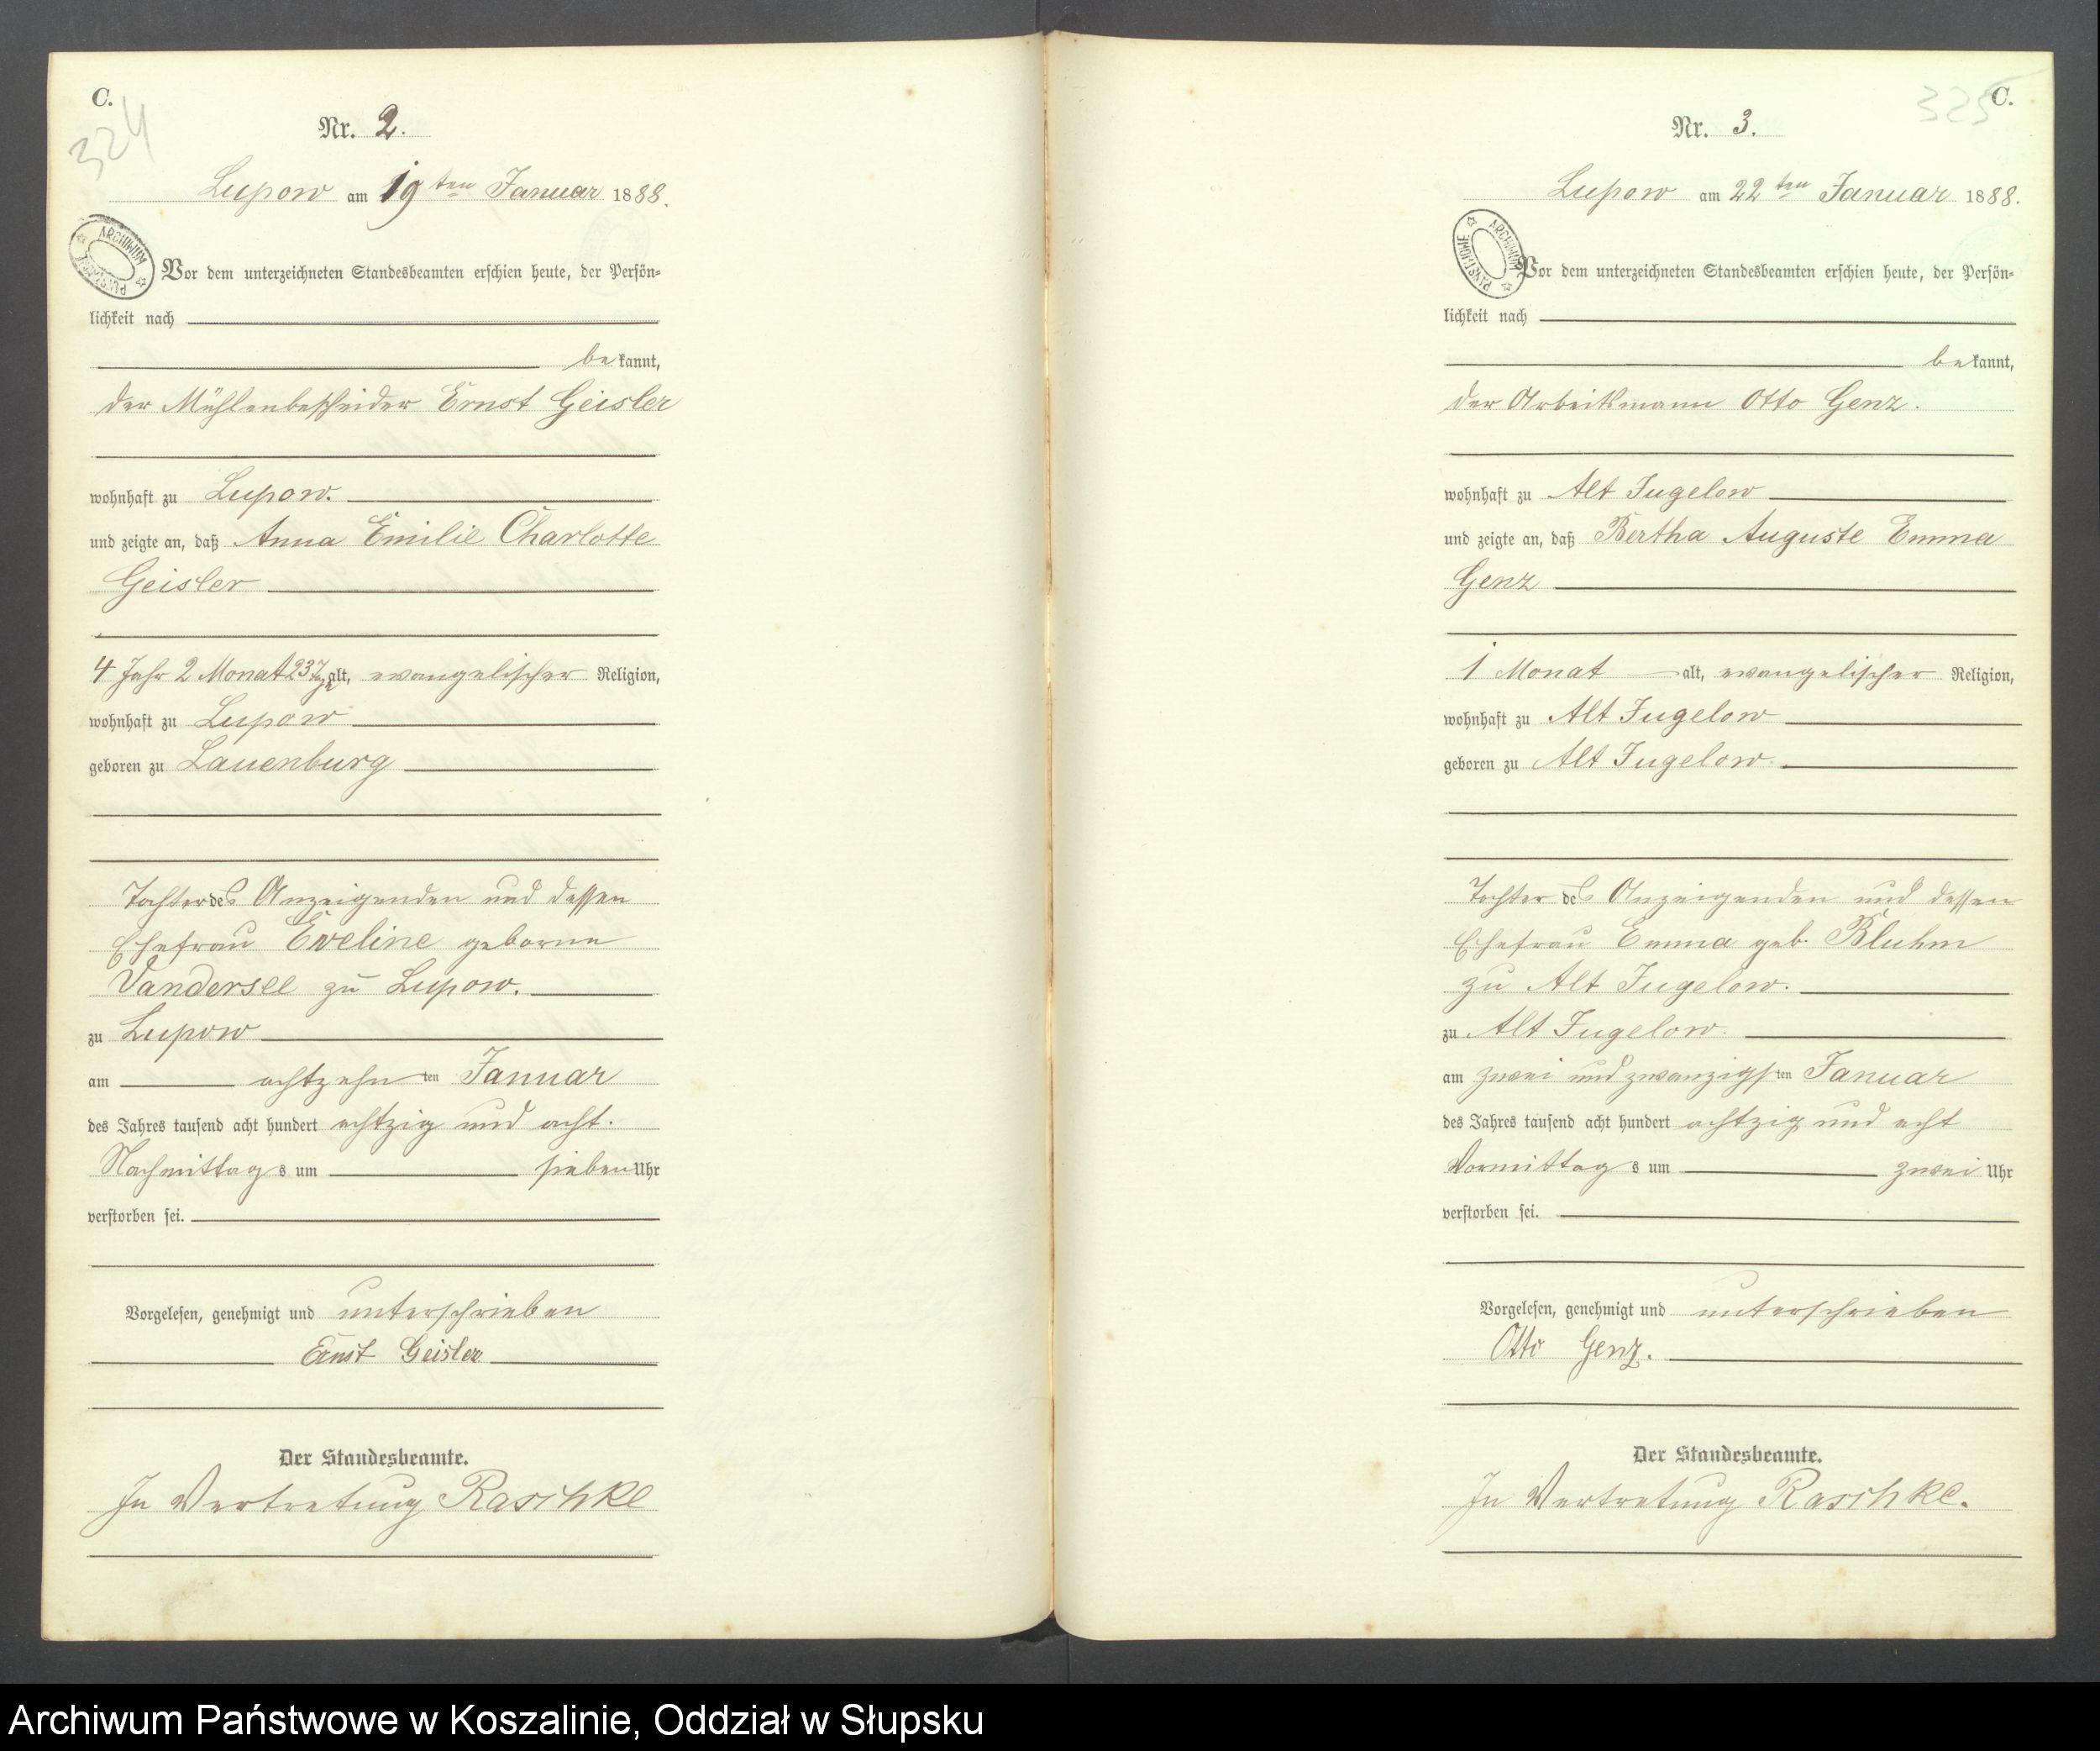 C.
324
Nr. 2.
Lupow am 19ten Januar 1888.
ARCHIWUM PAŃSTWOWE
Vor dem unterzeichneten Standesbeamten erschien heute, der Persön=
lichkeit nach
bekannt,
der Mühlenbescheider Ernst Geisler
wohnhaft zu Lupow.
und zeigte an, daß Anna Emilie Charlotte
Geisler
4 Jahr 2 Monat 23 Tg alt, evangelischer Religion,
wohnhaft zu Lupow
geboren zu Lauenburg
Tochter des Anzeigenden und dessen
Ehefrau Eveline geborne
Vandersee zu Lupow.
zu Lupow
am achtzehnten Januar
des Jahres tausend acht hundert achtzig und acht.
Nachmittags um sieben Uhr
verstorben sei.
Vorgelesen, genehmigt und unterschrieben
Ernst Geisler
Der Standesbeamte.
In Vertretung Raschke
325
C.
Nr. 3.
Lupow am 22ten Januar 1888.
ARCHIWUM PAŃSTWOWE
Vor dem unterzeichneten Standesbeamten erschien heute, der Persön=
lichkeit nach
bekannt,
der Arbeitsmann Otto Genz.
wohnhaft zu Alt Jugelow
und zeigte an, daß Bertha Auguste Emma
Genz
1 Monat alt, evangelischer Religion,
wohnhaft zu Alt Jugelow
geboren zu Alt Jugelow.
Tochter des Anzeigenden und dessen
Ehefrau Emma geb. Bluhm
zu Alt Jugelow.
zu Alt Jugelow.
am zwei und zwanzigsten Januar
des Jahres tausend acht hundert achtzig und acht
Vormittags um zwei Uhr
verstorben sei.
Vorgelesen, genehmigt und unterschrieben
Otto Genz.
Der Standesbeamte.
In Vertretung Raschke.
Archiwum Państwowe w Koszalinie, Oddział w Słupsku